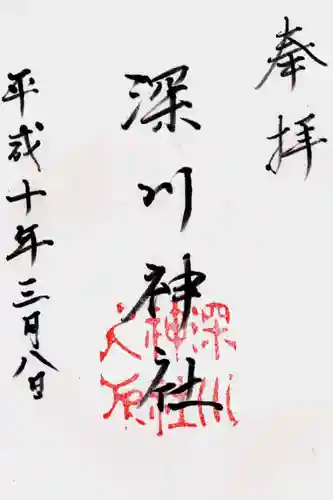 奉拝
深川神社
平成十年三月八日
深川
神社